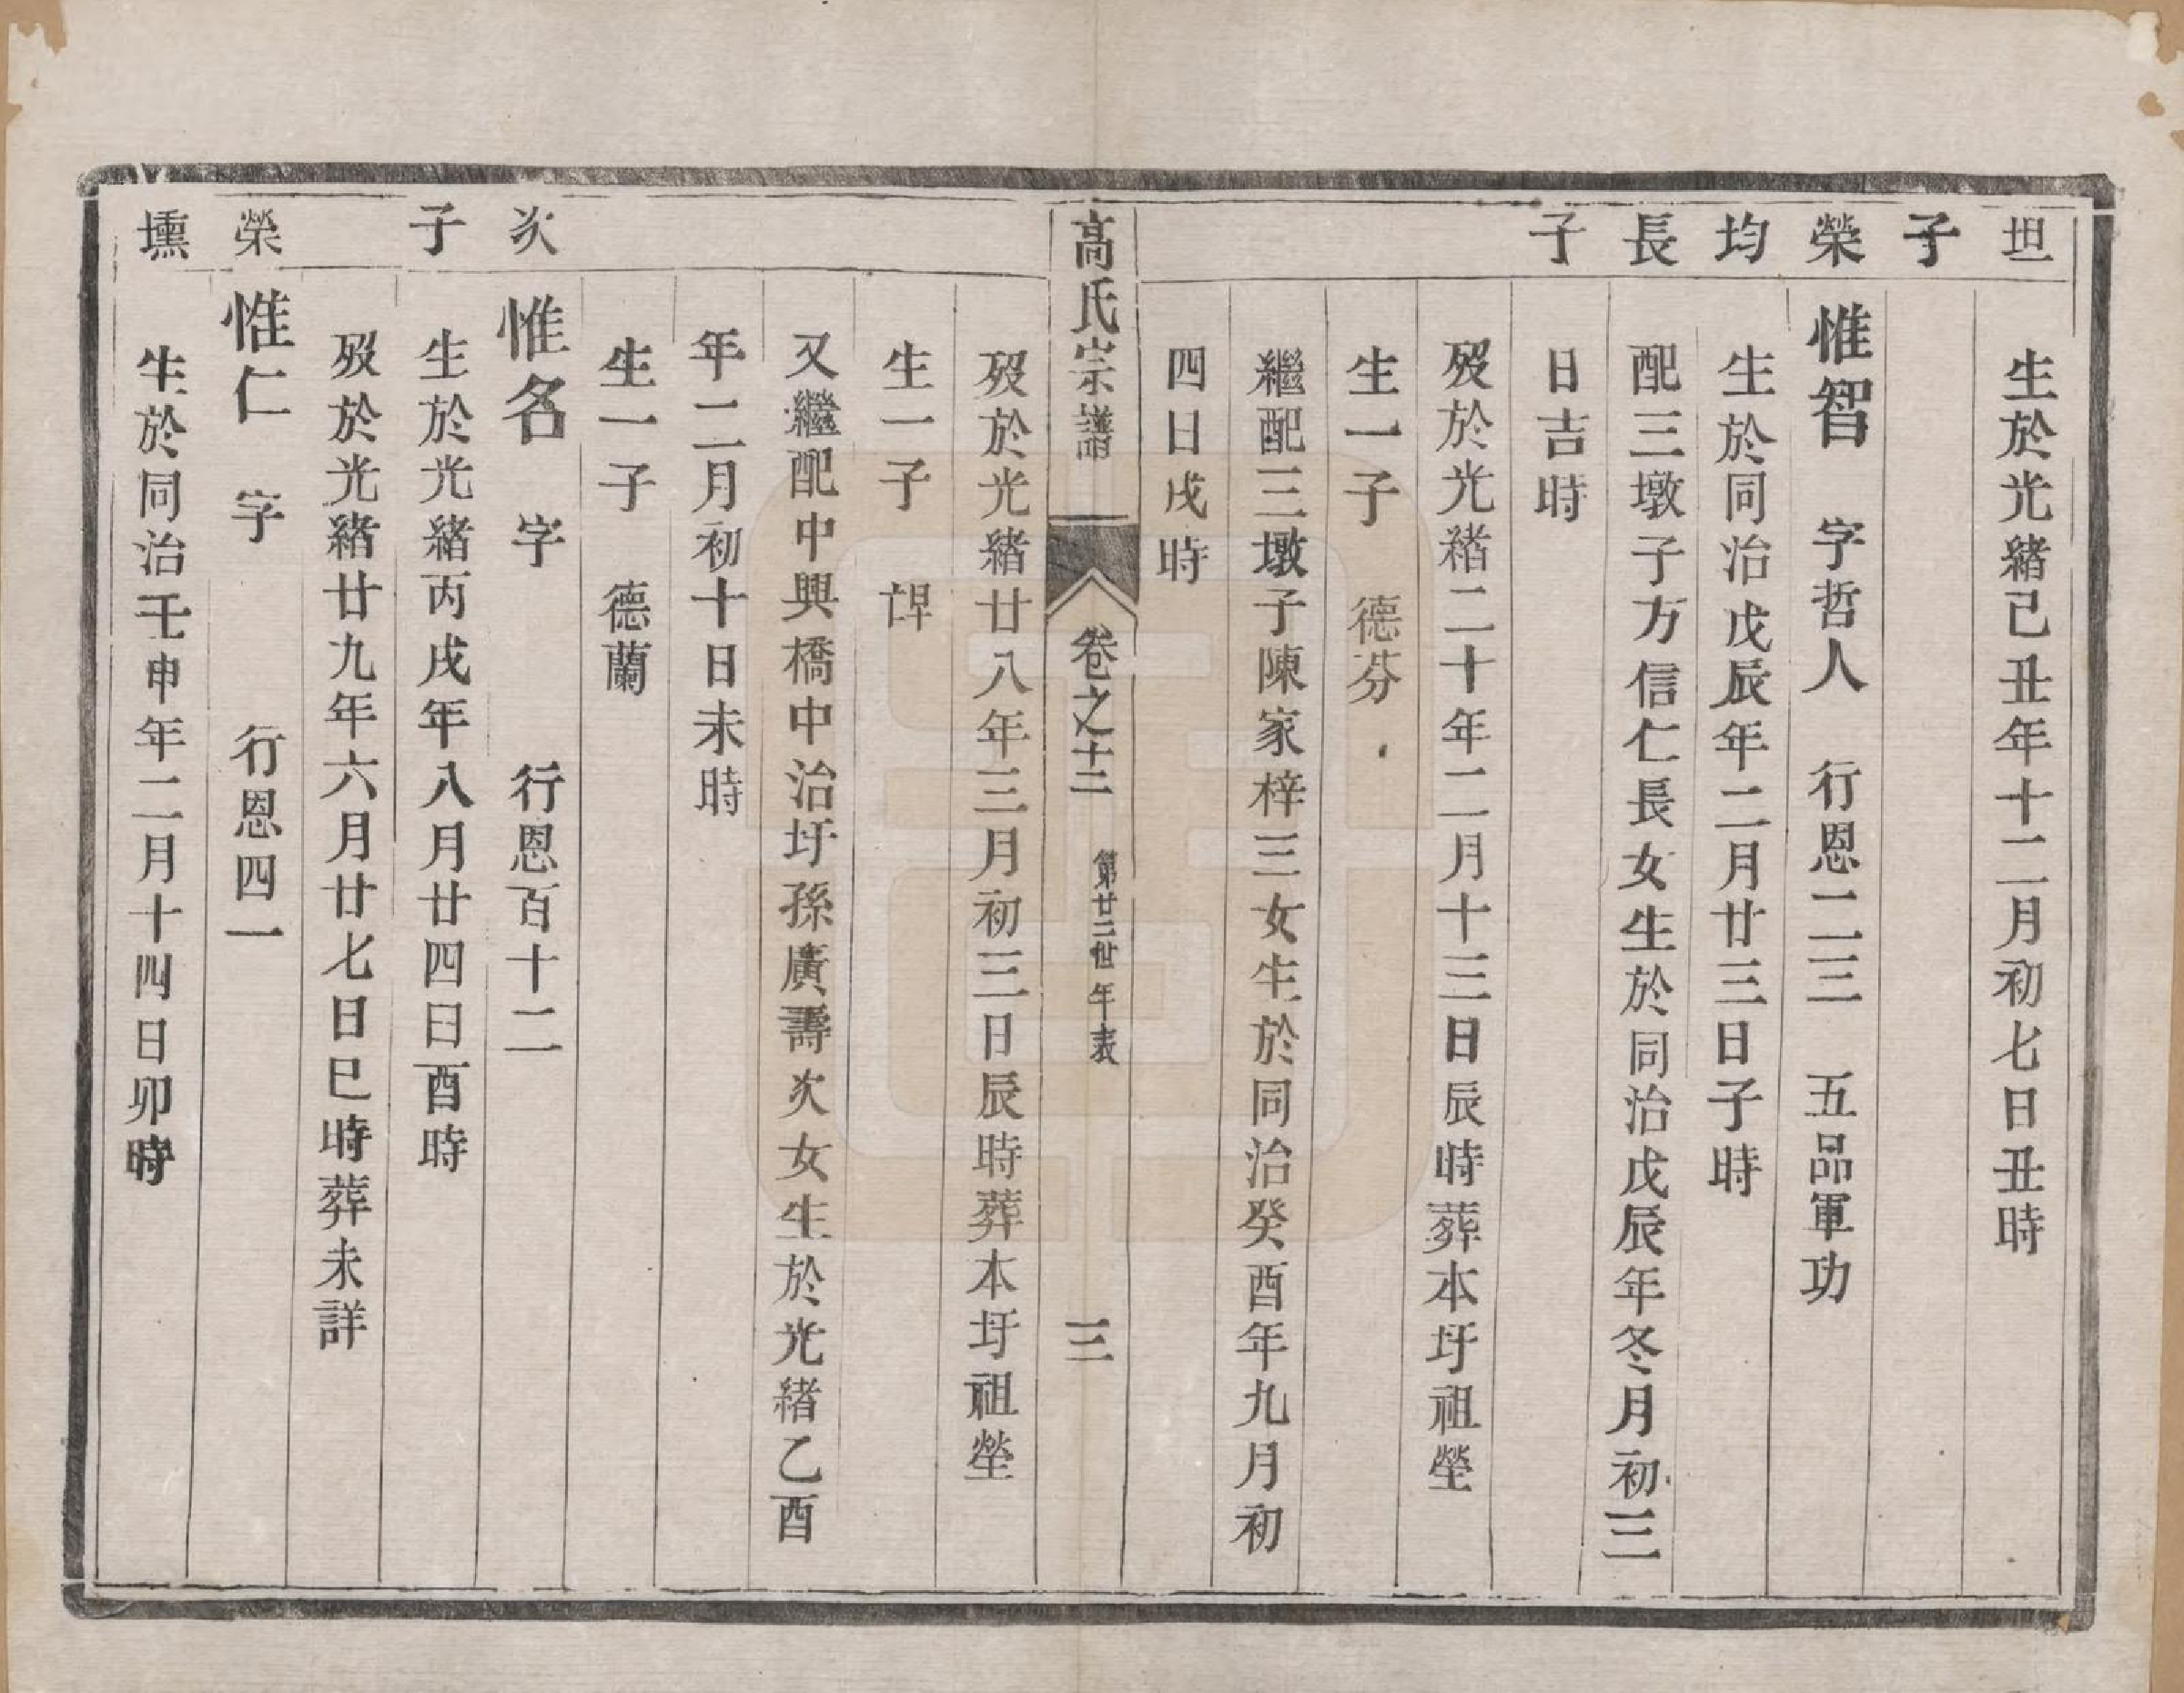 坦
子
生於光緒己丑年十二月初七日丑時
榮
均
長
子
惟智　字哲人　行恩二三　五品軍功
生於同治戊辰年二月廿三日子時
配三墩子方信仁長女生於同治戊辰年冬月初三
日吉時
歿於光緒二十年二月十三日辰時葬本圩祖塋
生一子　德芬
繼配三墩子陳家梓三女生於同治癸酉年九月初
四日戌時
高氏宗譜　卷之十二　第廿三世年表　三
歿於光緒廿八年三月初三日辰時葬本圩祖塋
生一子
又繼配中興橋中治圩孫廣壽次女生於光緒乙酉
年二月初十日未時
生一子　德蘭
次
子
惟名　字　行恩百十二
生於光緒丙戌年八月廿四日酉時
歿於光緒廿九年六月廿七日巳時葬未詳
榮
壎
惟仁　字　行恩四一
生於同治壬申年二月十四日卯時